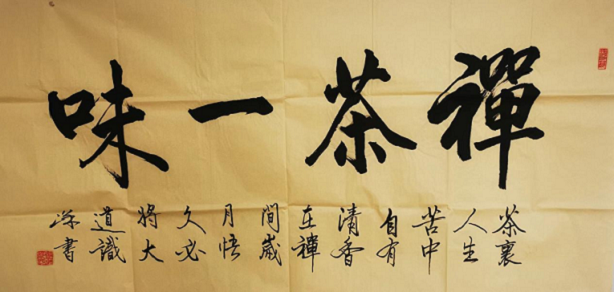 禪茶一味
茶裏
人生
苦中
自有
清香
在禪
間歲
月悟
久必
將大
道識
書